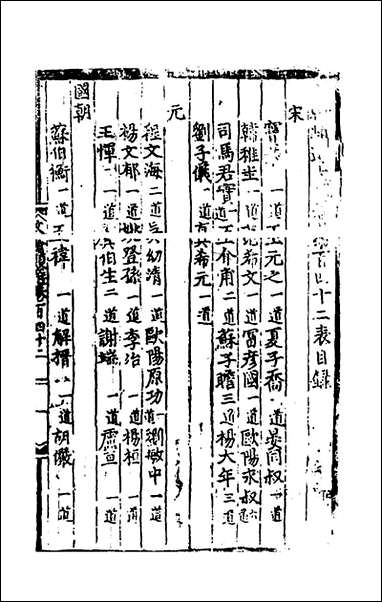 四十二表目錄
宋
一道王元之一道夏子喬一道晏同叔一道
韓稚圭一道范希文一道富彥國一道歐陽永叔
司馬君實一道王介甫二道蘇子瞻三道楊大年三道
劉子儀一道真希元一道
元
程文海二道吳幼清一道歐陽原功一道劉敏中一道
楊文郁一道姚登孫一道李治一道楊桓一道
王惲一道虞伯生二道謝端一道盧亘一道
國朝
蘇伯衡一道王褘一道解縉一道胡儼一道
百四十二